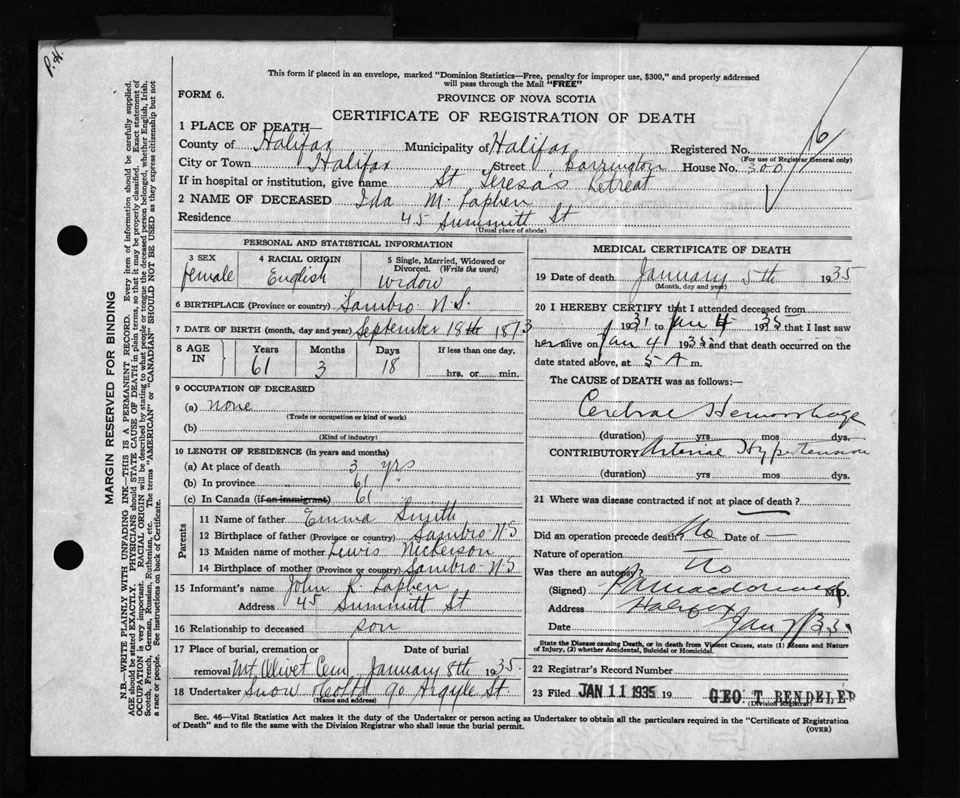 P.H.
This form if placed in an envelope, marked "Dominion Statistics—Free, penalty for improper use, $300," and properly addressed
will pass through the Mail "FREE"
FORM 6.
PROVINCE OF NOVA SCOTIA
CERTIFICATE OF REGISTRATION OF DEATH
1 PLACE OF DEATH—
County of Halifax Municipality of Halifax Registered No. 16
(For use of Registrar General only)
City or Town Halifax Street Barrington House No. 300
If in hospital or institution, give name St Teresa's Retreat
2 NAME OF DECEASED Ida M. Laphen
Residence 45 Summitt St
(Usual place of abode)
PERSONAL AND STATISTICAL INFORMATION
3 SEX 4 RACIAL ORIGIN 5 Single, Married, Widowed or
Divorced. (Write the word)
female English widow
6 BIRTHPLACE (Province or country) Sambro N.S.
7 DATE OF BIRTH (month, day and year) September 18th 1873
8 AGE IN Years Months Days If less than one day,
61 3 18 hrs. or min.
9 OCCUPATION OF DECEASED
(a) none
(Trade or occupation or kind of work)
(b)
(Kind of industry)
10 LENGTH OF RESIDENCE (in years and months)
(a) At place of death 3 yrs
(b) In province 61 "
(c) In Canada (if an immigrant) 61
Parents
11 Name of father Emma Smith
12 Birthplace of father (Province or country) Sambro N.S
13 Maiden name of mother Lewis Nickerson
14 Birthplace of mother (Province or country) Sambro N.S
15 Informant's name John R. Laphen
Address 45 Summitt St
16 Relationship to deceased son
17 Place of burial, cremation or Date of burial
removal Mt. Olivet Cem January 8th 1935.
18 Undertaker Snow & Co Ltd 90 Argyle St.
(Name and address)
MEDICAL CERTIFICATE OF DEATH
19 Date of death January 5th 1935
(Month, day and year)
20 I HEREBY CERTIFY that I attended deceased from
1931 to Jan 4 1935 that I last saw
her alive on Jan 4 1935 and that death occurred on the
date stated above, at 5 A m.
The CAUSE of DEATH was as follows:—
Cerebral Hemorrhage
(duration) yrs mos dys.
CONTRIBUTORY Arterial Hypertension
(duration) yrs mos dys.
21 Where was disease contracted if not at place of death?
Did an operation precede death? No Date of —
Nature of operation —
Was there an autopsy? No
(Signed) M.D.
Address Halifax
Date Jan 7/35
State the Disease causing Death, or in death from Violent Causes, state (1) Means and Nature
of Injury, (2) whether Accidental, Suicidal or Homicidal.
22 Registrar's Record Number
23 Filed JAN 11 1935 19 GEO. T. RENDELL
(Division Registrar)
Sec. 46—Vital Statistics Act makes it the duty of the Undertaker or person acting as Undertaker to obtain all the particulars required in the "Certificate of Registration
of Death" and to file the same with the Division Registrar who shall issue the burial permit.
(OVER)
MARGIN RESERVED FOR BINDING
N.B.—WRITE PLAINLY WITH UNFADING INK—THIS IS A PERMANENT RECORD. Every item of information should be carefully supplied.
AGE should be stated EXACTLY. PHYSICIANS should STATE CAUSE OF DEATH in plain terms, so that it may be properly classified. Exact statement of
OCCUPATION is very important. RACIAL ORIGIN will be described by stating to what people or tongue the deceased person belonged, whether English, Irish,
Scotch, French, German, Russian, Ruthenian, etc. The terms "AMERICAN" or "CANADIAN" SHOULD NOT BE USED as they express citizenship but not
a race or people. See instructions on back of Certificate.